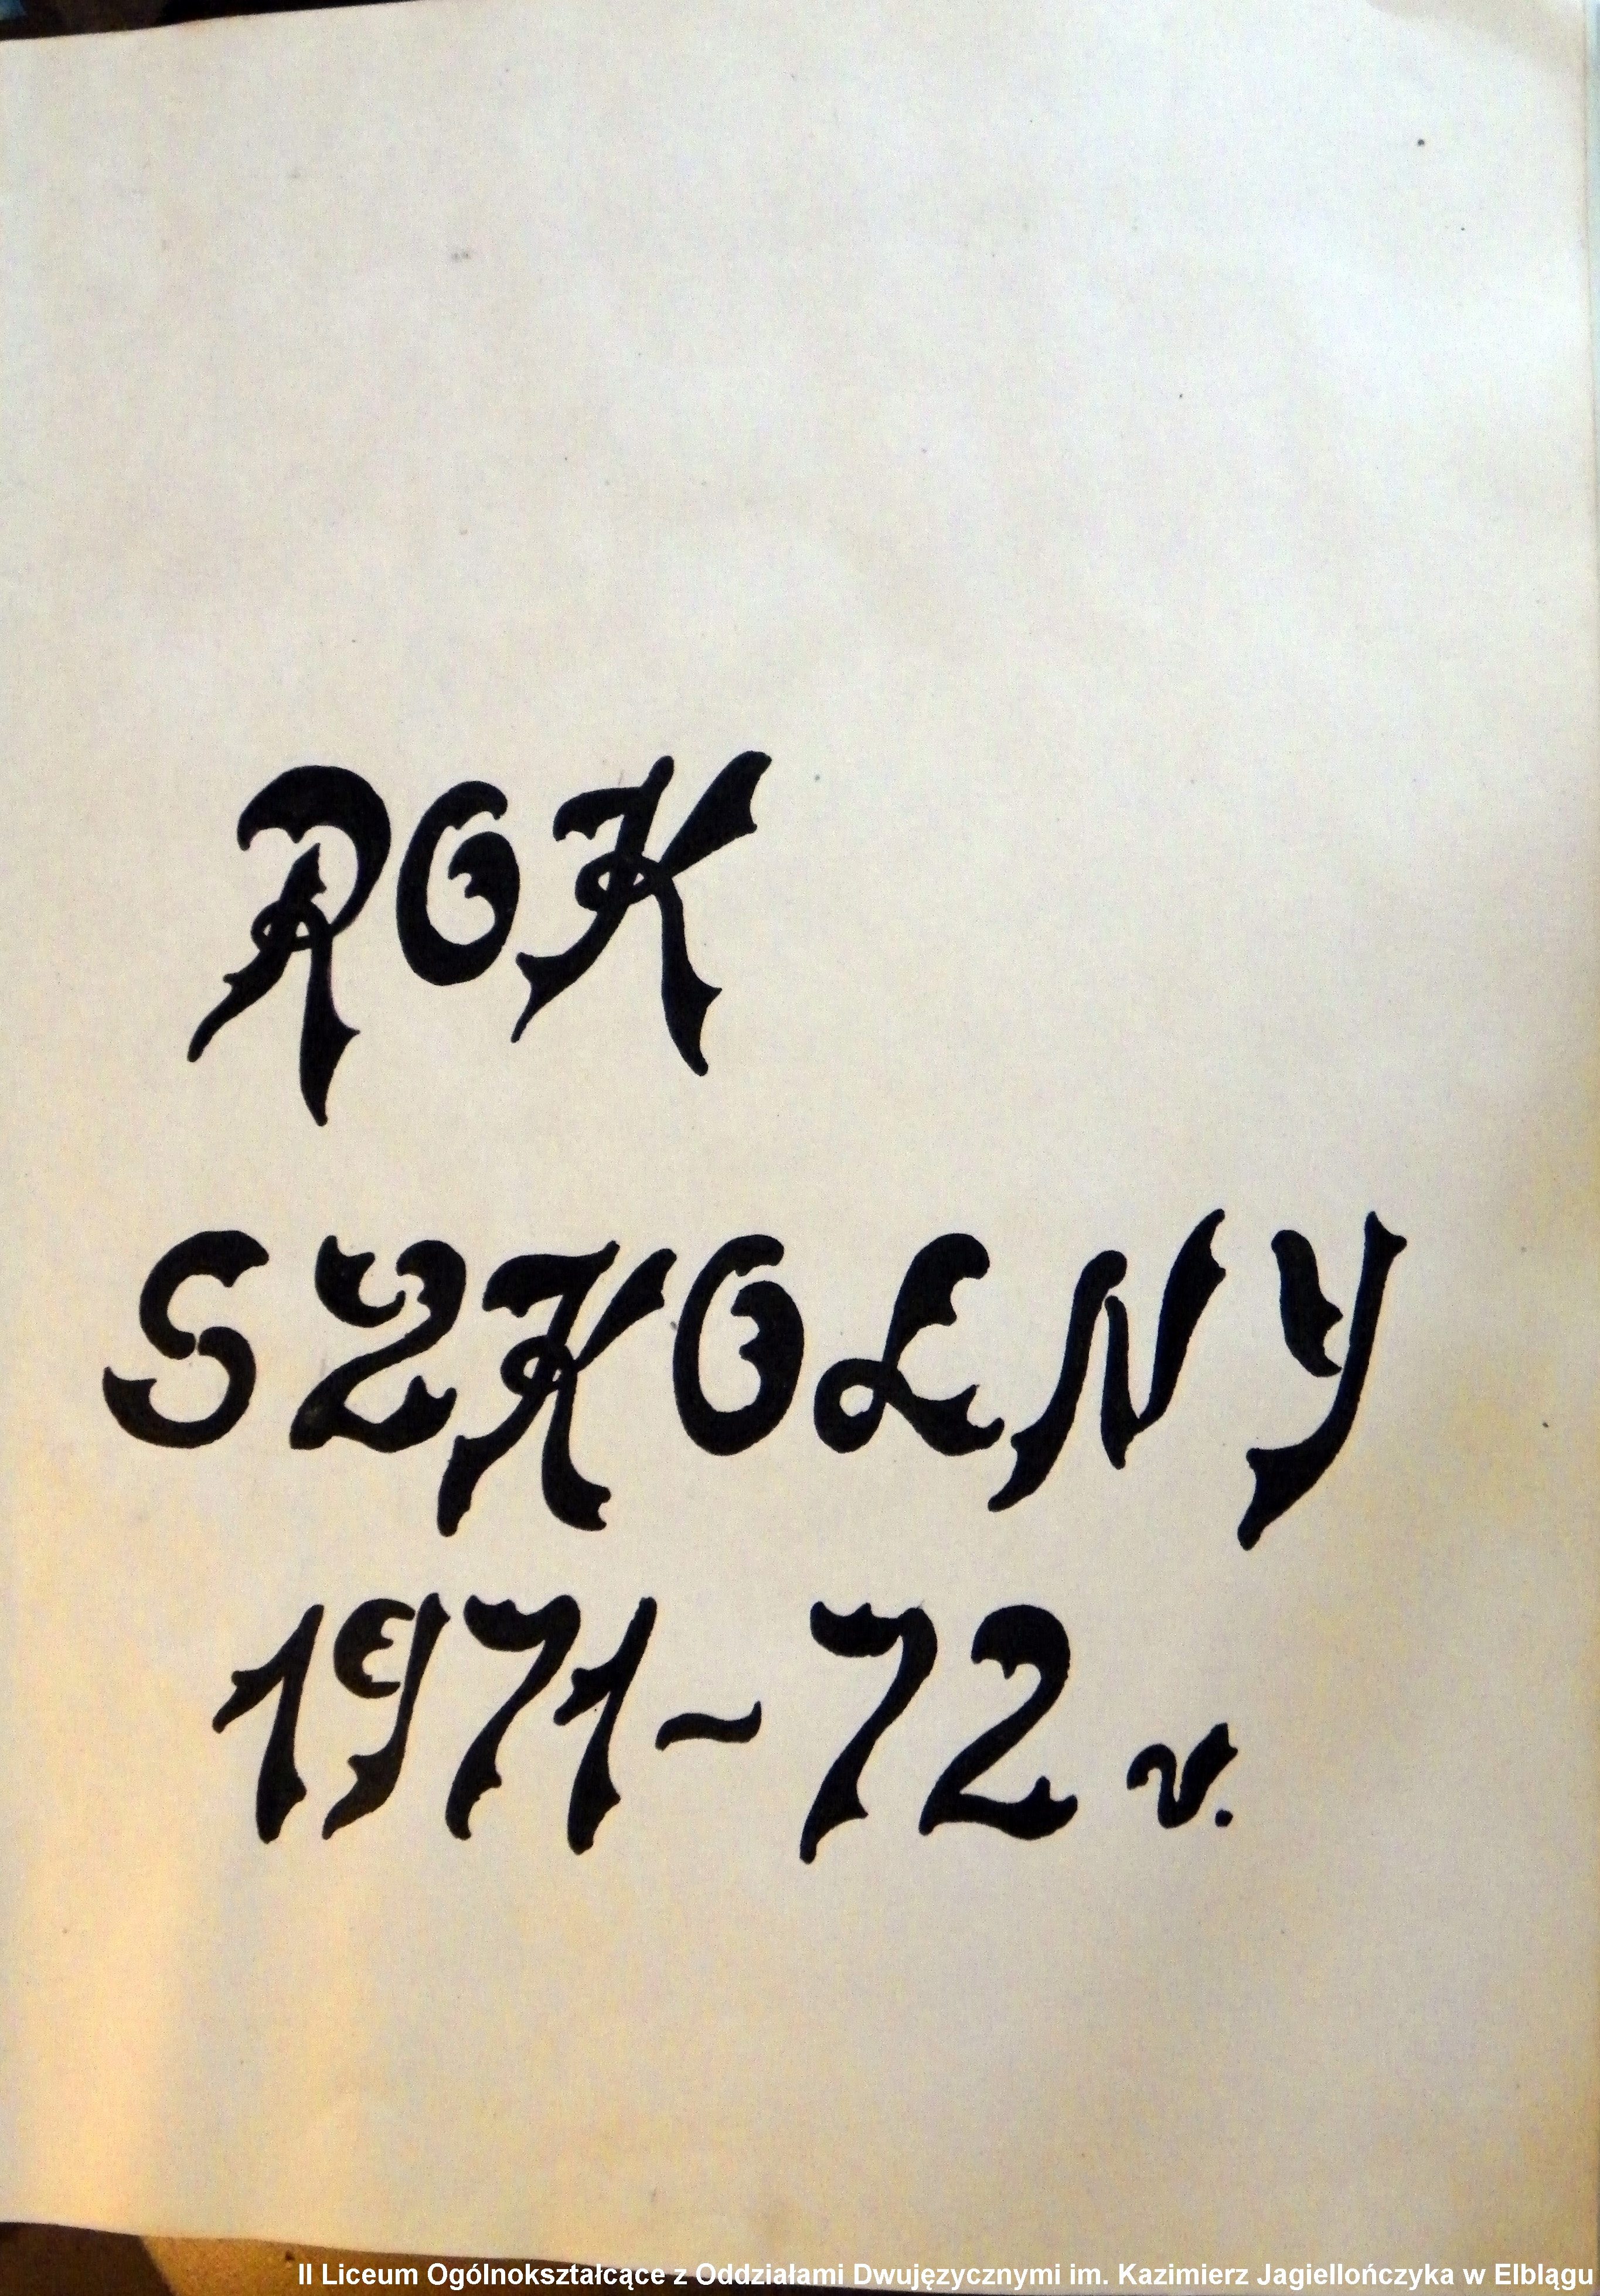 ROK
SZKOLNY
1971-72 r.
II Liceum Ogólnokształcące z Oddziałami Dwujęzycznymi im. Kazimierz Jagiellończyka w Elblągu